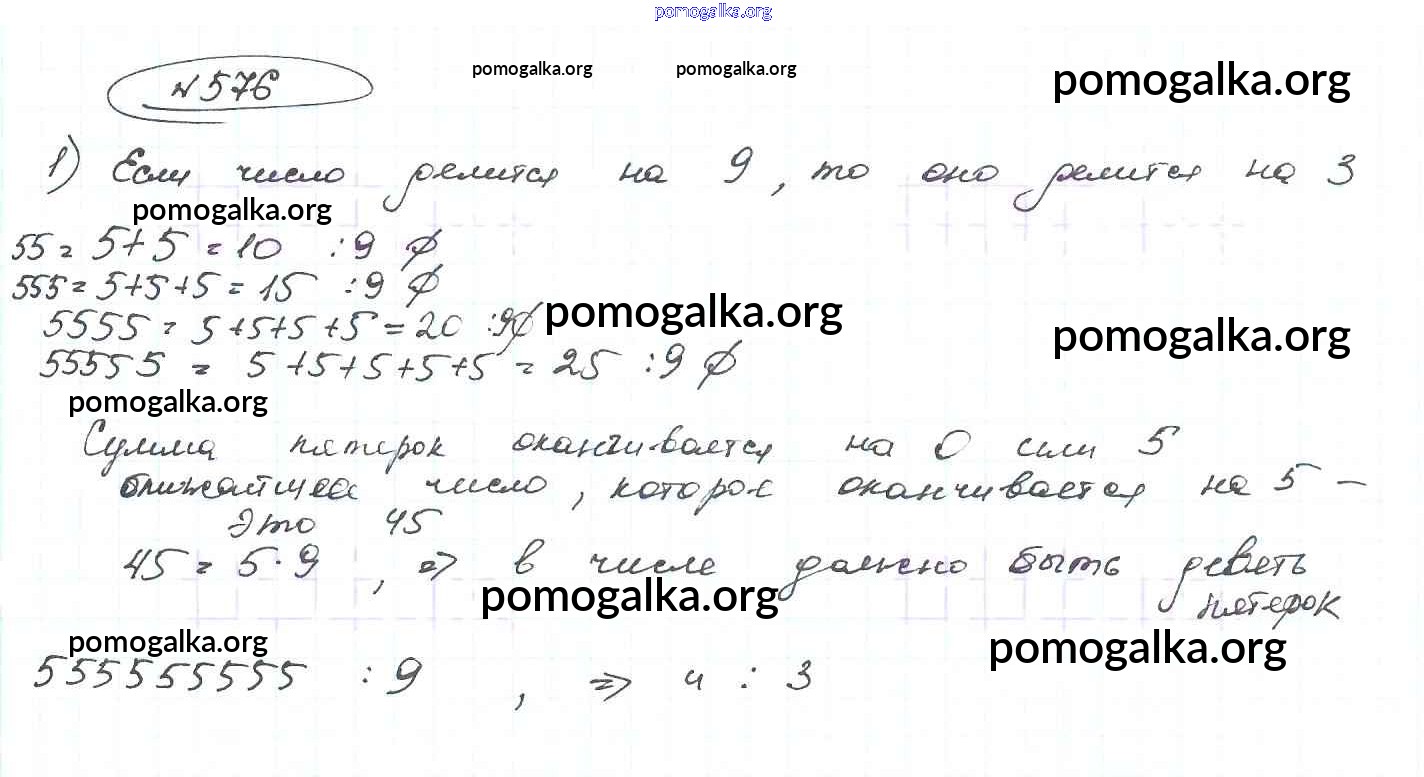 pomogalka.org
pomogalka.org pomogalka.org pomogalka.org
№576
1) Если число делится на 9, то оно делится на 3
pomogalka.org
55 = 5+5 = 10 :9 ∅
555 = 5+5+5 = 15 :9 ∅
5555 = 5+5+5+5 = 20 :9∅ pomogalka.org
pomogalka.org
55555 = 5+5+5+5+5 = 25 :9 ∅
pomogalka.org
Сумма пятерок оканчивается на 0 или 5
ближайшее число, которое оканчивается на 5 –
это 45
45 = 5·9, => в числе должно быть девять
пятерок
pomogalka.org
pomogalka.org pomogalka.org
555555555 :9, => и : 3